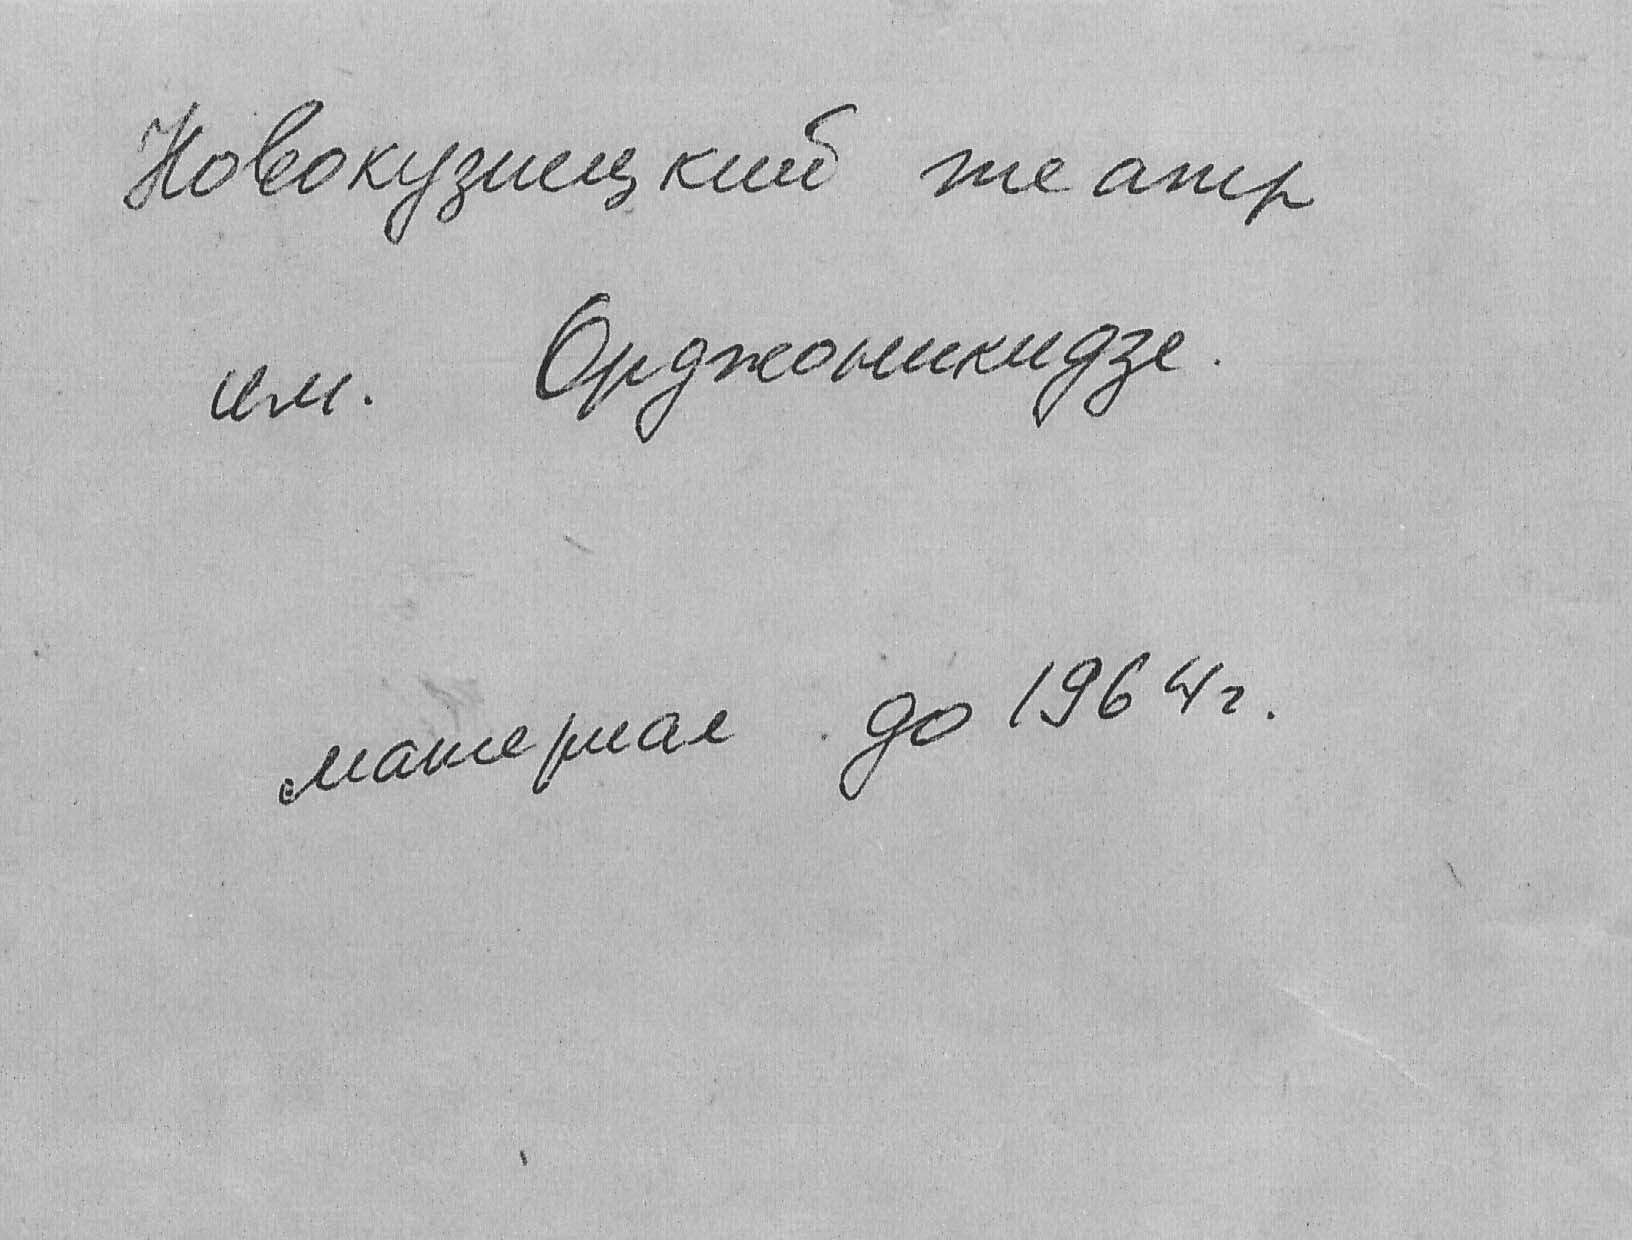 Новокузнецкий театр
им. Орджоникидзе.
материал до 1964 г.